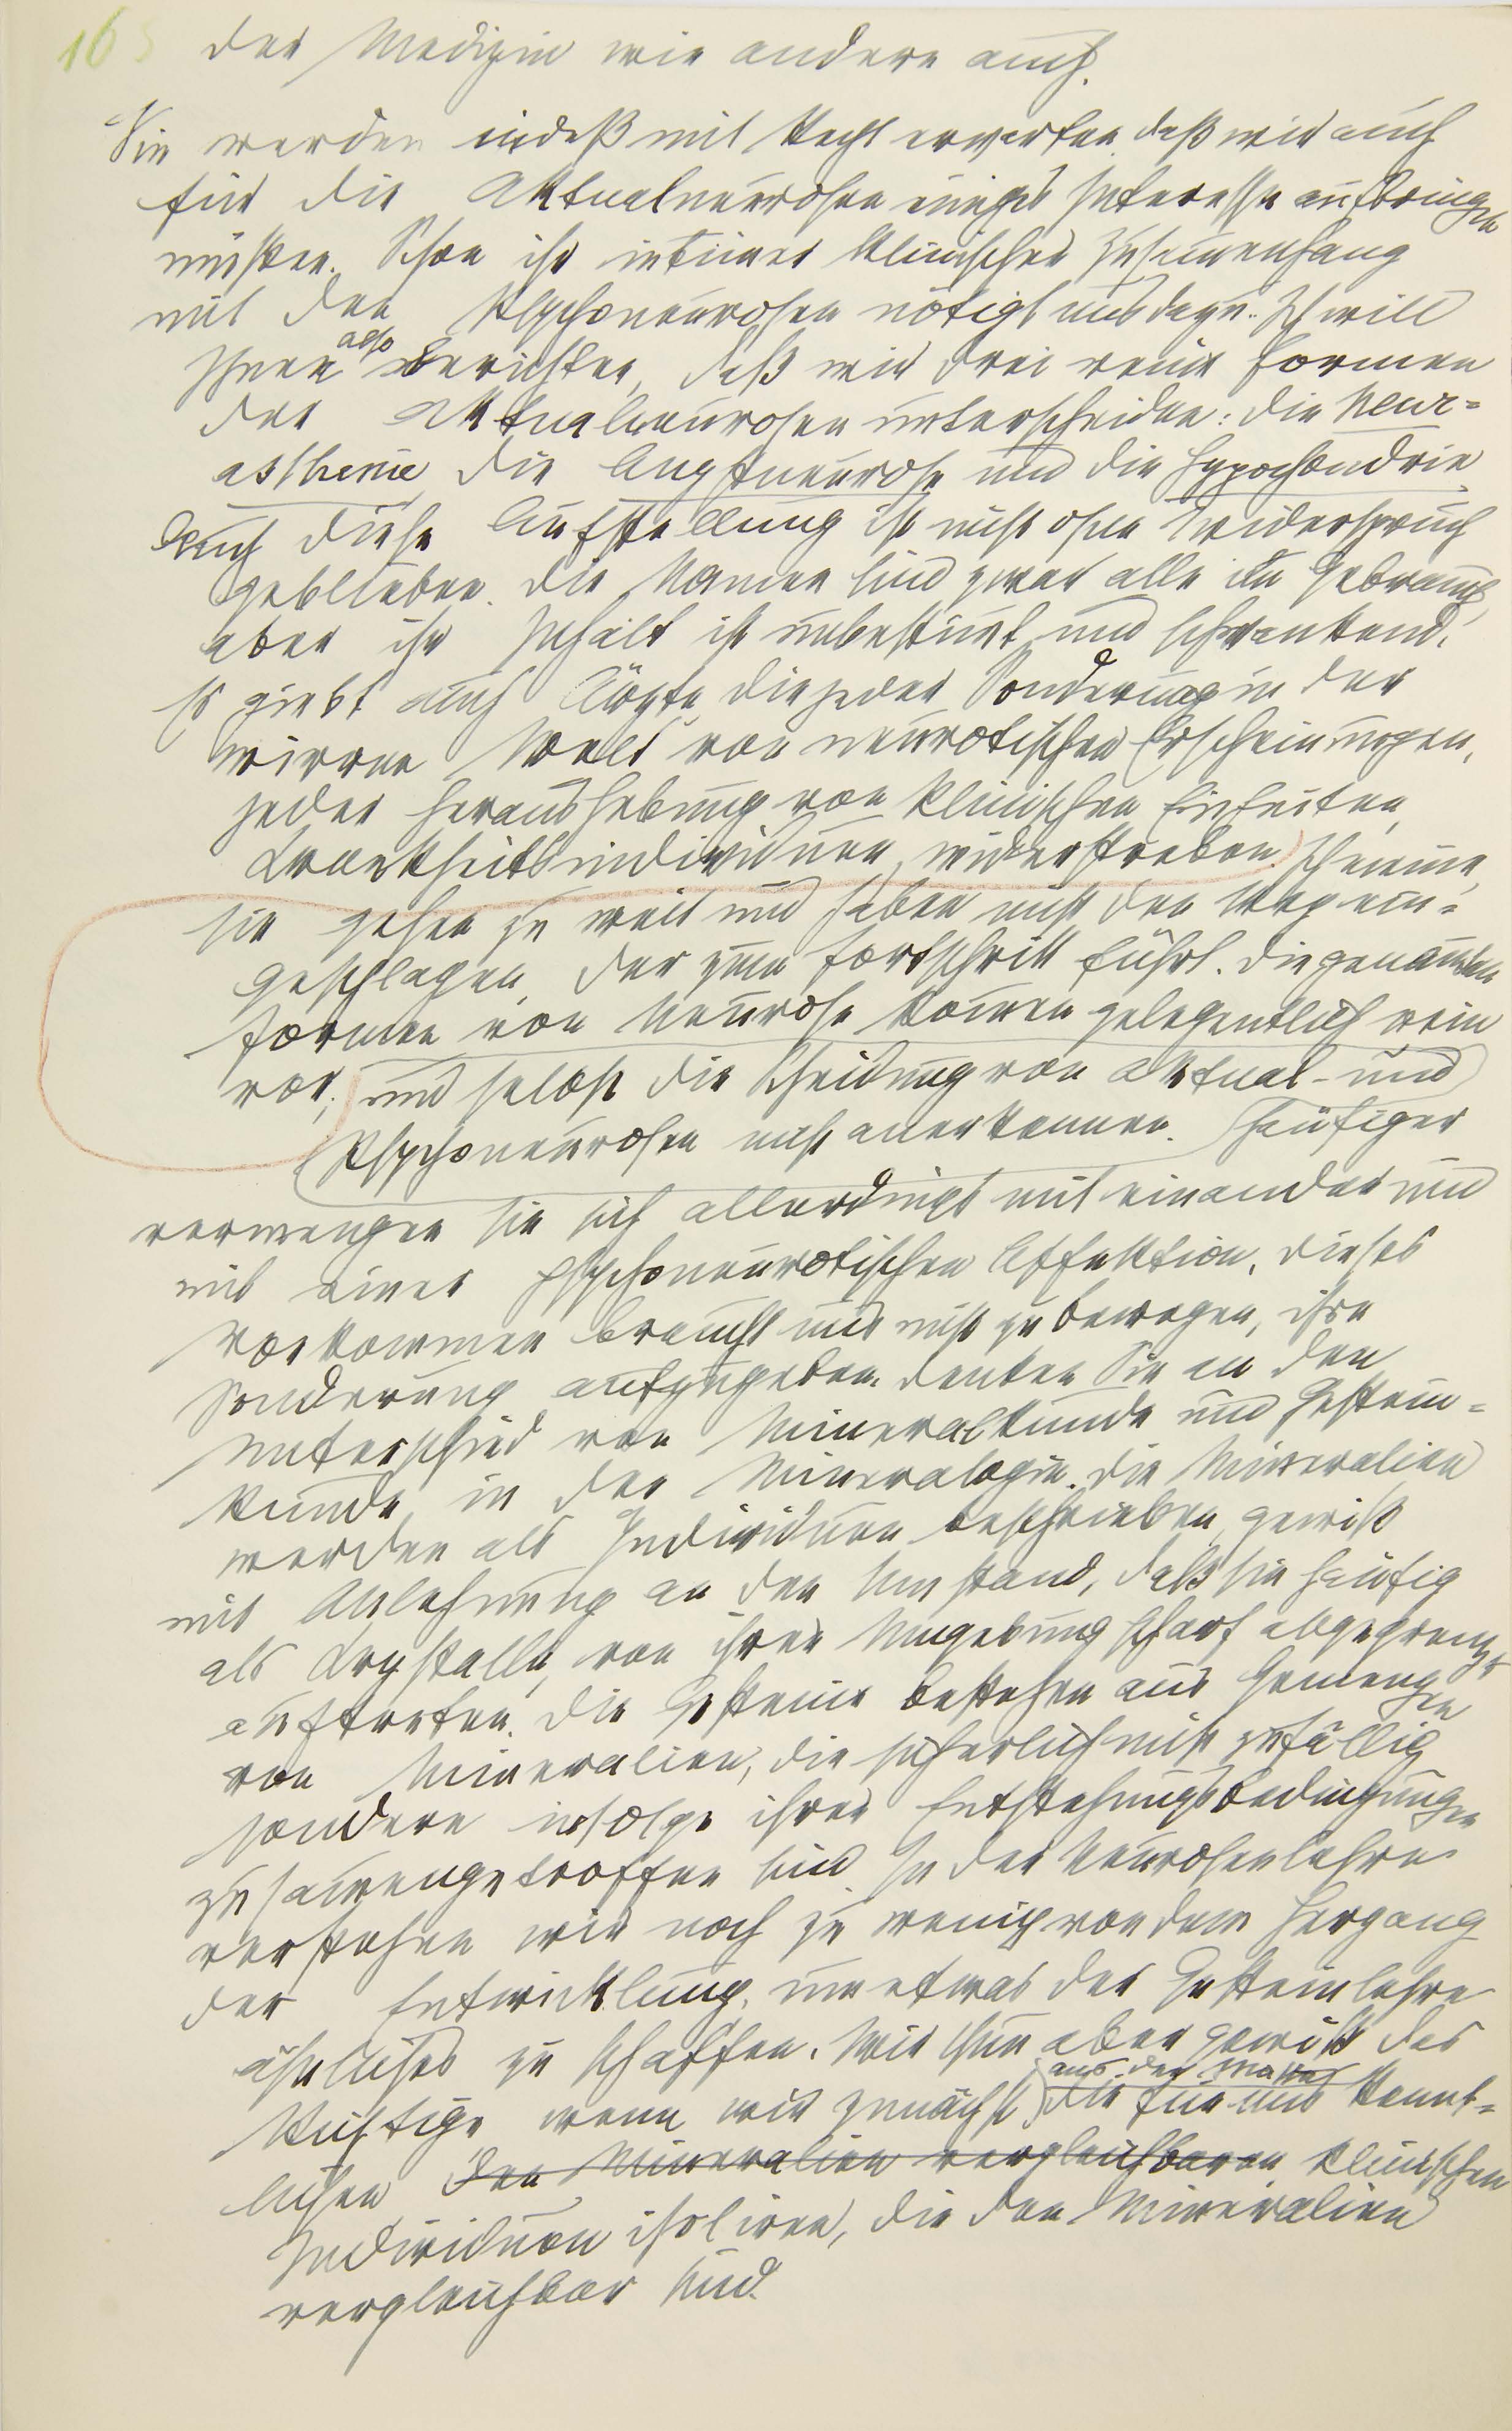 165
der Medizin wie andere auch.
Sie werden indeß mit Recht erwarten, daß wir auch
für die Aktualneurosen einiges Interesse aufbringen
müßten. Schon ihr intimer klinischer Zusam̅enhang
mit den Psychoneurosen nötigt uns dazu. Ich will
also
Ihnen berichten, daß wir drei reine Formen
der Aktualneurosen unterscheiden: die Neur-
asthenie, die Angstneurose und die Hypochondrie.
Auch diese Aufstellung ist nicht ohne Widerspruch
geblieben. Die Namen sind zwar alle im Gebrauch,
aber ihr Inhalt ist unbestim̅t und schwankend.
Es giebt auch Ärzte, die jeder Sonderung in der
wirren Welt von neurotischen Erscheinungen,
jeder Heraushebung von klinischen Einheiten,
Krankheitsindividuen, widerstreben. Ich meine,
sie gehen zu weit und haben nicht den Weg ein-
geschlagen, der zum Fortschritt führt. Die genannten
Formen von Neurose kom̅en gelegentlich rein
vor; und selbst die Scheidung von Aktual- und
Psychoneurosen nicht anerkennen. Häufiger
vermengen sie sich allerdings mit einander und
mit einer psychoneurotischen Affektion. Dieses
Vorkommen braucht uns nicht zu bewegen, ihre
Sonderung aufzugeben. Denken Sie an den
Unterschied von Mineralkunde und Gestein-
kunde in der Mineralogie. Die Mineralien
werden als Individuen beschrieben, gewiß
mit Anlehnung an den Umstand, daß sie häufig
als Krystalle, von ihrer Umgebung scharf abgegrenzt
auftreten. Die Gesteine bestehen aus Gemengen
von Mineralien, die sicherlich nicht zufällig
sondern infolge ihrer Entstehungsbedingungen
zusam̅engetroffen sind. In der Neurosenlehre
verstehen wir noch zu wenig von dem Hergang
der Entwicklung, um etwas der Gesteinlehre
ähnliches zu schaffen. Wir thun aber gewiß das
aus der Masse
Richtige wenn wir zunächst die für uns kennt-
lichen den Mineralien vergleichbaren klinischen
Individuen isoliren, die den Mineralien
vergleichbar sind.